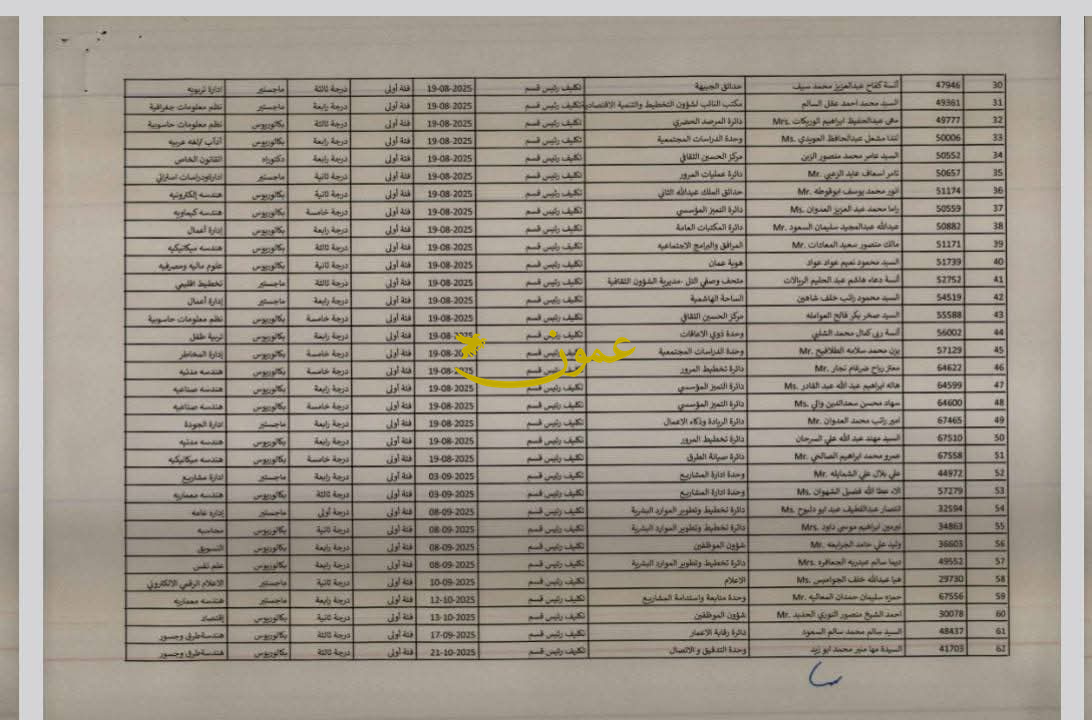 30 47946 آنسة كفاح عبدالعزيز محمد سيف حدائق الجبيهة تكليف رئيس قسم 19-08-2025 فئة أولى درجة ثالثة ماجستير ادارة تربويه
31 49361 السيد محمد احمد عقل السالم مكتب النائب لشؤون التخطيط والتنمية الاقتصادية تكليف رئيس قسم 19-08-2025 فئة أولى درجة رابعة ماجستير نظم معلومات جغرافية
32 49777 مهى عبدالحفيظ ابراهيم الوريكات Mrs. دائرة المرصد الحضري تكليف رئيس قسم 19-08-2025 فئة أولى درجة ثالثة بكالوريوس نظم معلومات حاسوبية
33 50006 لندا مشعل عبدالحافظ العويدي Ms. وحدة الدراسات المجتمعية تكليف رئيس قسم 19-08-2025 فئة أولى درجة رابعة بكالوريوس آداب /لغه عربيه
34 50552 السيد عامر محمد منصور الزبن مركز الحسين الثقافي تكليف رئيس قسم 19-08-2025 فئة أولى درجة رابعة دكتوراه القانون الخاص
35 50657 ثامر اسعاف عايد الزعبي Mr. دائرة عمليات المرور تكليف رئيس قسم 19-08-2025 فئة أولى درجة ثانية ماجستير
36 51174 انور محمد يوسف ابوقوطه Mr. حدائق الملك عبدالله الثاني تكليف رئيس قسم 19-08-2025 فئة أولى درجة ثانية بكالوريوس هندسه إلكترونيه
37 50559 راما محمد عبد العزيز العدوان Ms. دائرة التميز المؤسسي تكليف رئيس قسم 19-08-2025 فئة أولى درجة خامسة بكالوريوس هندسة كيماويه
38 50882 عبدالله عبدالمجيد سليمان السعود Mr. دائرة المكتبات العامة تكليف رئيس قسم 19-08-2025 فئة أولى درجة رابعة بكالوريوس إدارة أعمال
39 51171 مالك منصور سعيد المعادات Mr. المرافق والبرامج الاجتماعيه تكليف رئيس قسم 19-08-2025 فئة أولى درجة ثالثة بكالوريوس هندسه ميكانيكيه
40 51739 السيد محمود نعيم عواد عواد هوية عمان تكليف رئيس قسم 19-08-2025 فئة أولى درجة ثانية بكالوريوس علوم ماليه ومصرفيه
41 52752 آنسة دعاء هاشم عبد الحليم الربالات متحف وصفي التل -مديرية الشؤون الثقافية تكليف رئيس قسم 19-08-2025 فئة أولى درجة ثالثة ماجستير تخطيط اقليمي
42 54519 السيد محمود راتب خلف شاهين الساحة الهاشمية تكليف رئيس قسم 19-08-2025 فئة أولى درجة رابعة ماجستير إدارة أعمال
43 55588 السيد صخر بكر فالح العوامله مركز الحسين الثقافي تكليف رئيس قسم 19-08-2025 فئة أولى درجة خامسة ماجستير نظم معلومات حاسوبية
44 56002 آنسة ربى كمال محمد الشلبي وحدة ذوي الاعاقات تكليف رئيس قسم 19-08-2025 فئة أولى درجة رابعة بكالوريوس تربية طفل
45 57129 يزن محمد سلامه الطلافيح Mr. وحدة الدراسات المجتمعية تكليف رئيس قسم 19-08-2025 فئة أولى درجة خامسة بكالوريوس إدارة المخاطر
46 64622 معتز رباح ضرغام نجار Mr. دائرة تخطيط المرور تكليف رئيس قسم 19-08-2025 فئة أولى درجة خامسة بكالوريوس هندسه مدنيه
47 64599 هاله ابراهيم عبد الله عبد القادر Ms. دائرة التميز المؤسسي تكليف رئيس قسم 19-08-2025 فئة أولى درجة رابعة بكالوريوس هندسه صناعيه
48 64600 سهاد محسن سعدالدين والي Ms. دائرة التميز المؤسسي تكليف رئيس قسم 19-08-2025 فئة أولى درجة خامسة بكالوريوس هندسه صناعيه
49 67465 امير راتب محمد العدوان Mr. دائرة الريادة وذكاء الاعمال تكليف رئيس قسم 19-08-2025 فئة أولى درجة رابعة ماجستير ادارة الجودة
50 67510 السيد مهند عبد الله علي السرحان دائرة تخطيط المرور تكليف رئيس قسم 19-08-2025 فئة أولى درجة رابعة بكالوريوس هندسه مدنيه
51 67558 عمرو محمد ابراهيم الصالحي Mr. دائرة صيانة الطرق تكليف رئيس قسم 19-08-2025 فئة أولى درجة خامسة بكالوريوس هندسه ميكانيكيه
52 44972 علي بلال علي الشمايله Mr. وحدة ادارة المشاريع تكليف رئيس قسم 03-09-2025 فئة أولى درجة رابعة ماجستير ادارة مشاريع
53 57279 الاء عطا الله فضيل الشهوان Ms. وحدة ادارة المشاريع تكليف رئيس قسم 03-09-2025 فئة أولى درجة ثالثة بكالوريوس هندسه معماريه
54 32594 انتصار عبداللطيف عبد ابو دلبوح Ms. دائرة تخطيط وتطوير الموارد البشرية تكليف رئيس قسم 08-09-2025 فئة أولى درجة أولى ماجستير إداره عامه
55 34863 نيرمين ابراهيم موسى داود Mrs. دائرة تخطيط وتطوير الموارد البشرية تكليف رئيس قسم 08-09-2025 فئة أولى درجة ثانية بكالوريوس محاسبه
56 36603 وليد علي حامد الجرابعه Mr. شؤون الموظفين تكليف رئيس قسم 08-09-2025 فئة أولى درجة رابعة بكالوريوس التسويق
57 49552 ديما سالم عبدربه الجعافره Mrs. دائرة تخطيط وتطوير الموارد البشرية تكليف رئيس قسم 08-09-2025 فئة أولى درجة رابعة بكالوريوس علم نفس
58 29730 هبا عبدالله خلف الجواميس Ms. الاعلام تكليف رئيس قسم 10-09-2025 فئة أولى درجة ثانية ماجستير الاعلام الرقمي الالكتروني
59 67556 حمزه سليمان حمدان المعاليه Mr. وحدة متابعة واستدامة المشاريع تكليف رئيس قسم 12-10-2025 فئة أولى درجة رابعة بكالوريوس هندسه معماريه
60 30078 احمد الشيخ منصور النوري الحديد Mr. شؤون الموظفين تكليف رئيس قسم 13-10-2025 فئة أولى درجة ثانية بكالوريوس إقتصاد
61 48437 السيد سالم محمد سالم السعود دائرة رقابة الاعمار تكليف رئيس قسم 17-09-2025 فئة أولى درجة ثالثة بكالوريوس هندسةطرق وجسور
62 41703 السيدة مها منير محمد ابو زيد وحدة التدقيق و الاتصال تكليف رئيس قسم 21-10-2025 فئة أولى درجة ثالثة بكالوريوس هندسةطرق وجسور
عمون